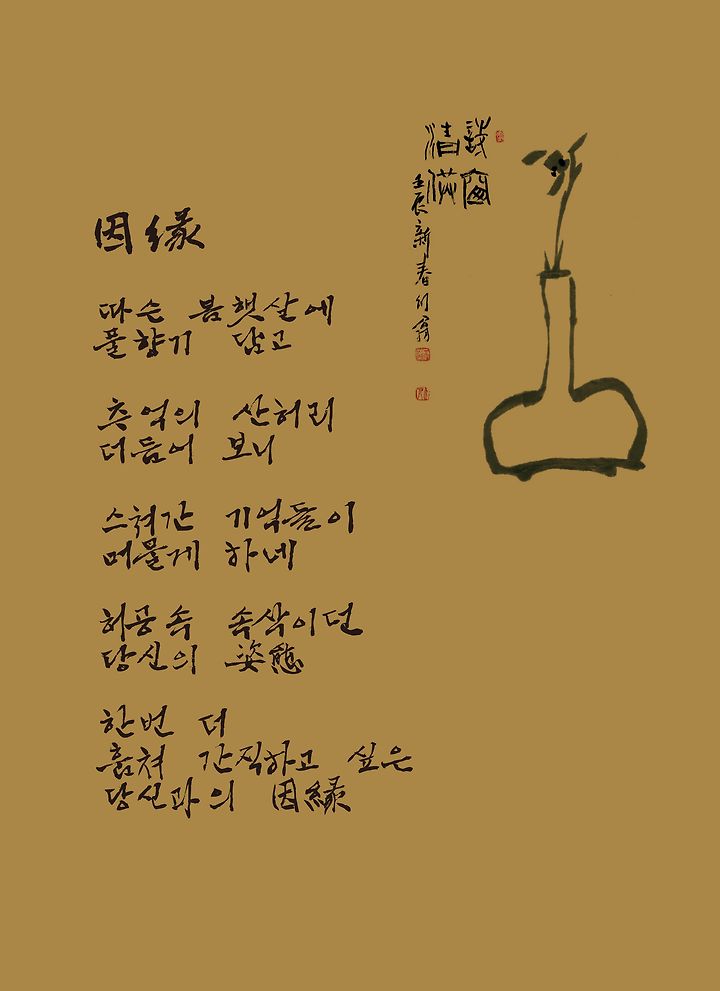 因緣
따슨 봄햇살에
풀향기 담고
추억의 산허리
더듬어 보니
스쳐간 기억들이
머물게 하네
허공속 속삭이던
당신의 姿態
한번 더
훔쳐 간직하고 싶은
당신과의 因緣
清供
壬辰新春